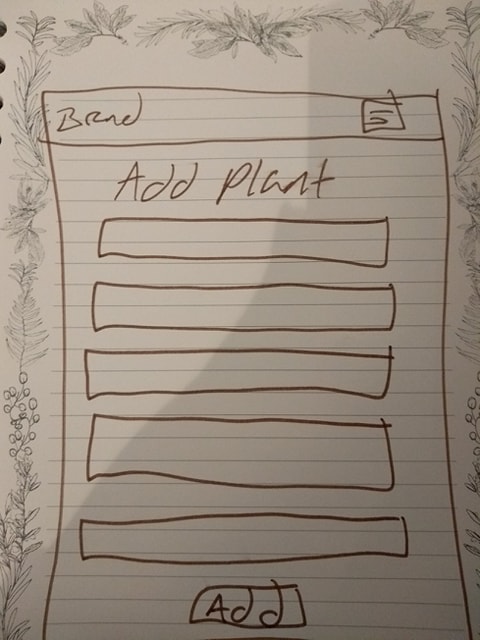 Brand
Add Plant
Add